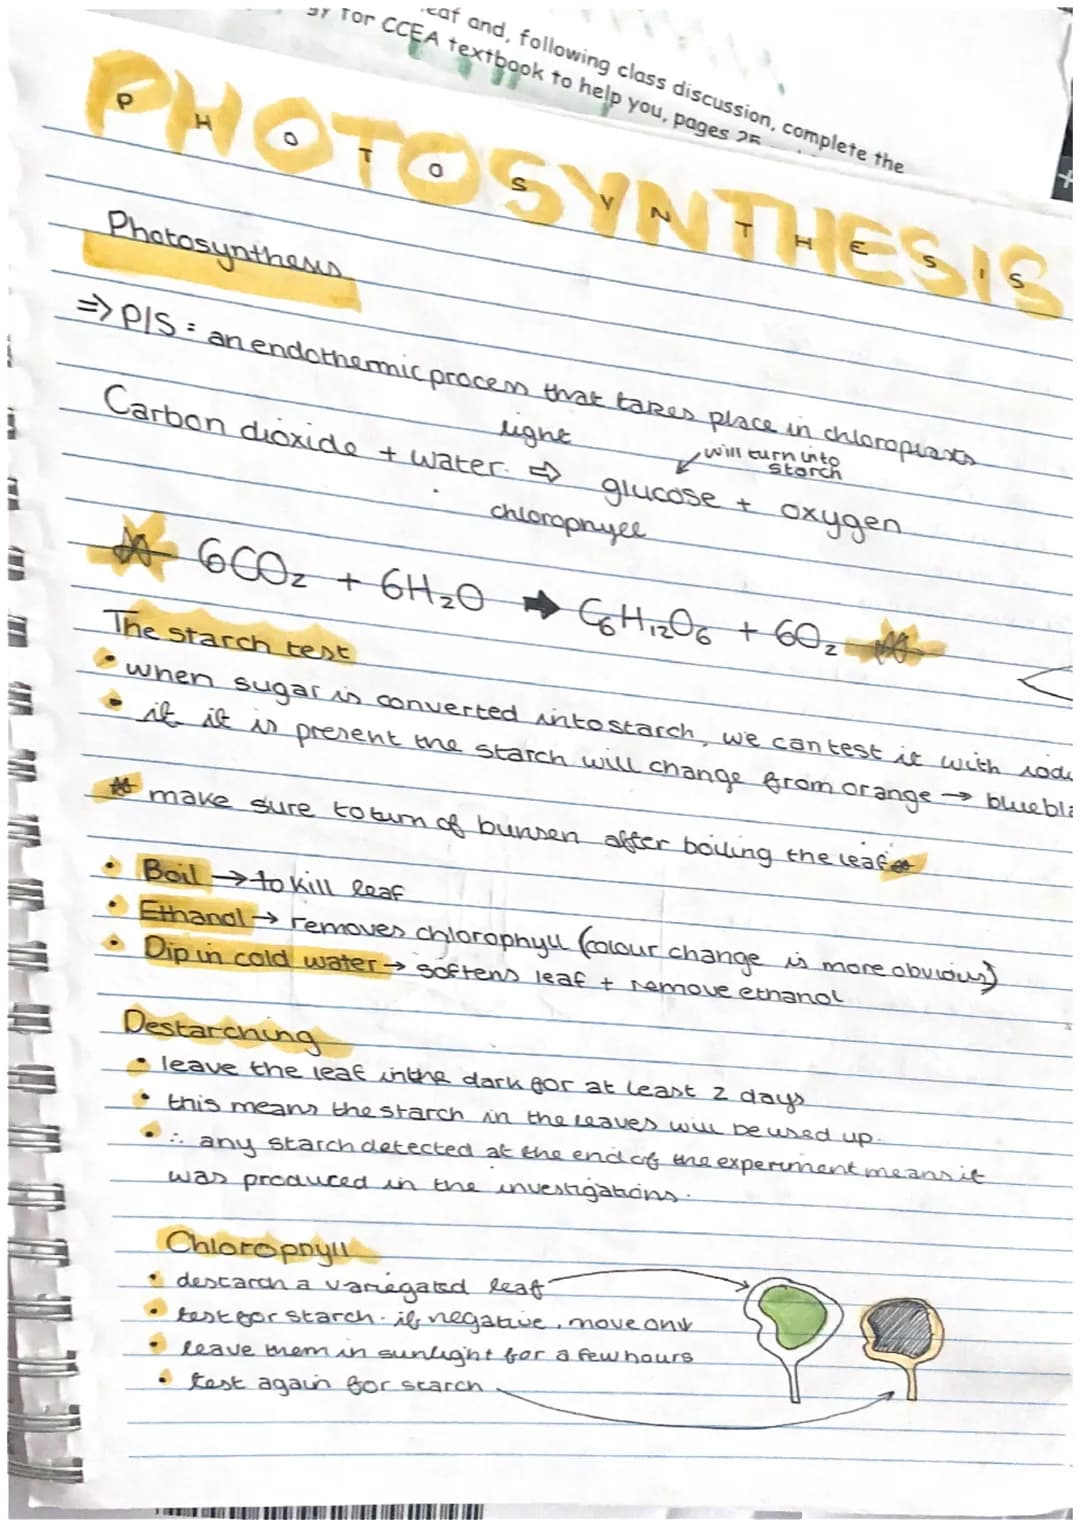 eaf and, following class discussion, complete the
gy for CCEA textbook to help you, pages 25
PHOTOSYNTHESIS
P H O T O S Y N T H E S I S
Photosynthesis
=> P/S = an endothermic process that takes place in chloroplasts
light
will turn into
starch
Carbon dioxide + water ⇨ glucose + oxygen
chlorophyll
6CO₂ + 6H₂O → C₆H₁₂O₆ + 6O₂
The starch test
• when sugar is converted into starch, we can test it with iod
• if it is present the starch will change from orange → bluebla
* make sure to turn of bunsen after boiling the leaf *
• Boil → to kill leaf
• Ethanol → removes chlorophyll (colour change is more obvious)
• Dip in cold water → softens leaf + remove ethanol
Destarching
• leave the leaf in the dark for at least 2 days
• this means the starch in the leaves will be used up.
• ∴ any starch detected at the end of the experiment means it
was produced in the investigations.
Chlorophyll
• destarch a variegated leaf
• test for starch. if negative, move on ↓
• leave them in sunlight for a few hours
• test again for starch